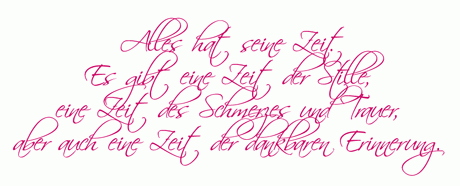 Alles hat seine Zeit.
Es gibt eine Zeit der Stille,
eine Zeit des Schmerzes und Trauer,
aber auch eine Zeit der dankbaren Erinnerung.